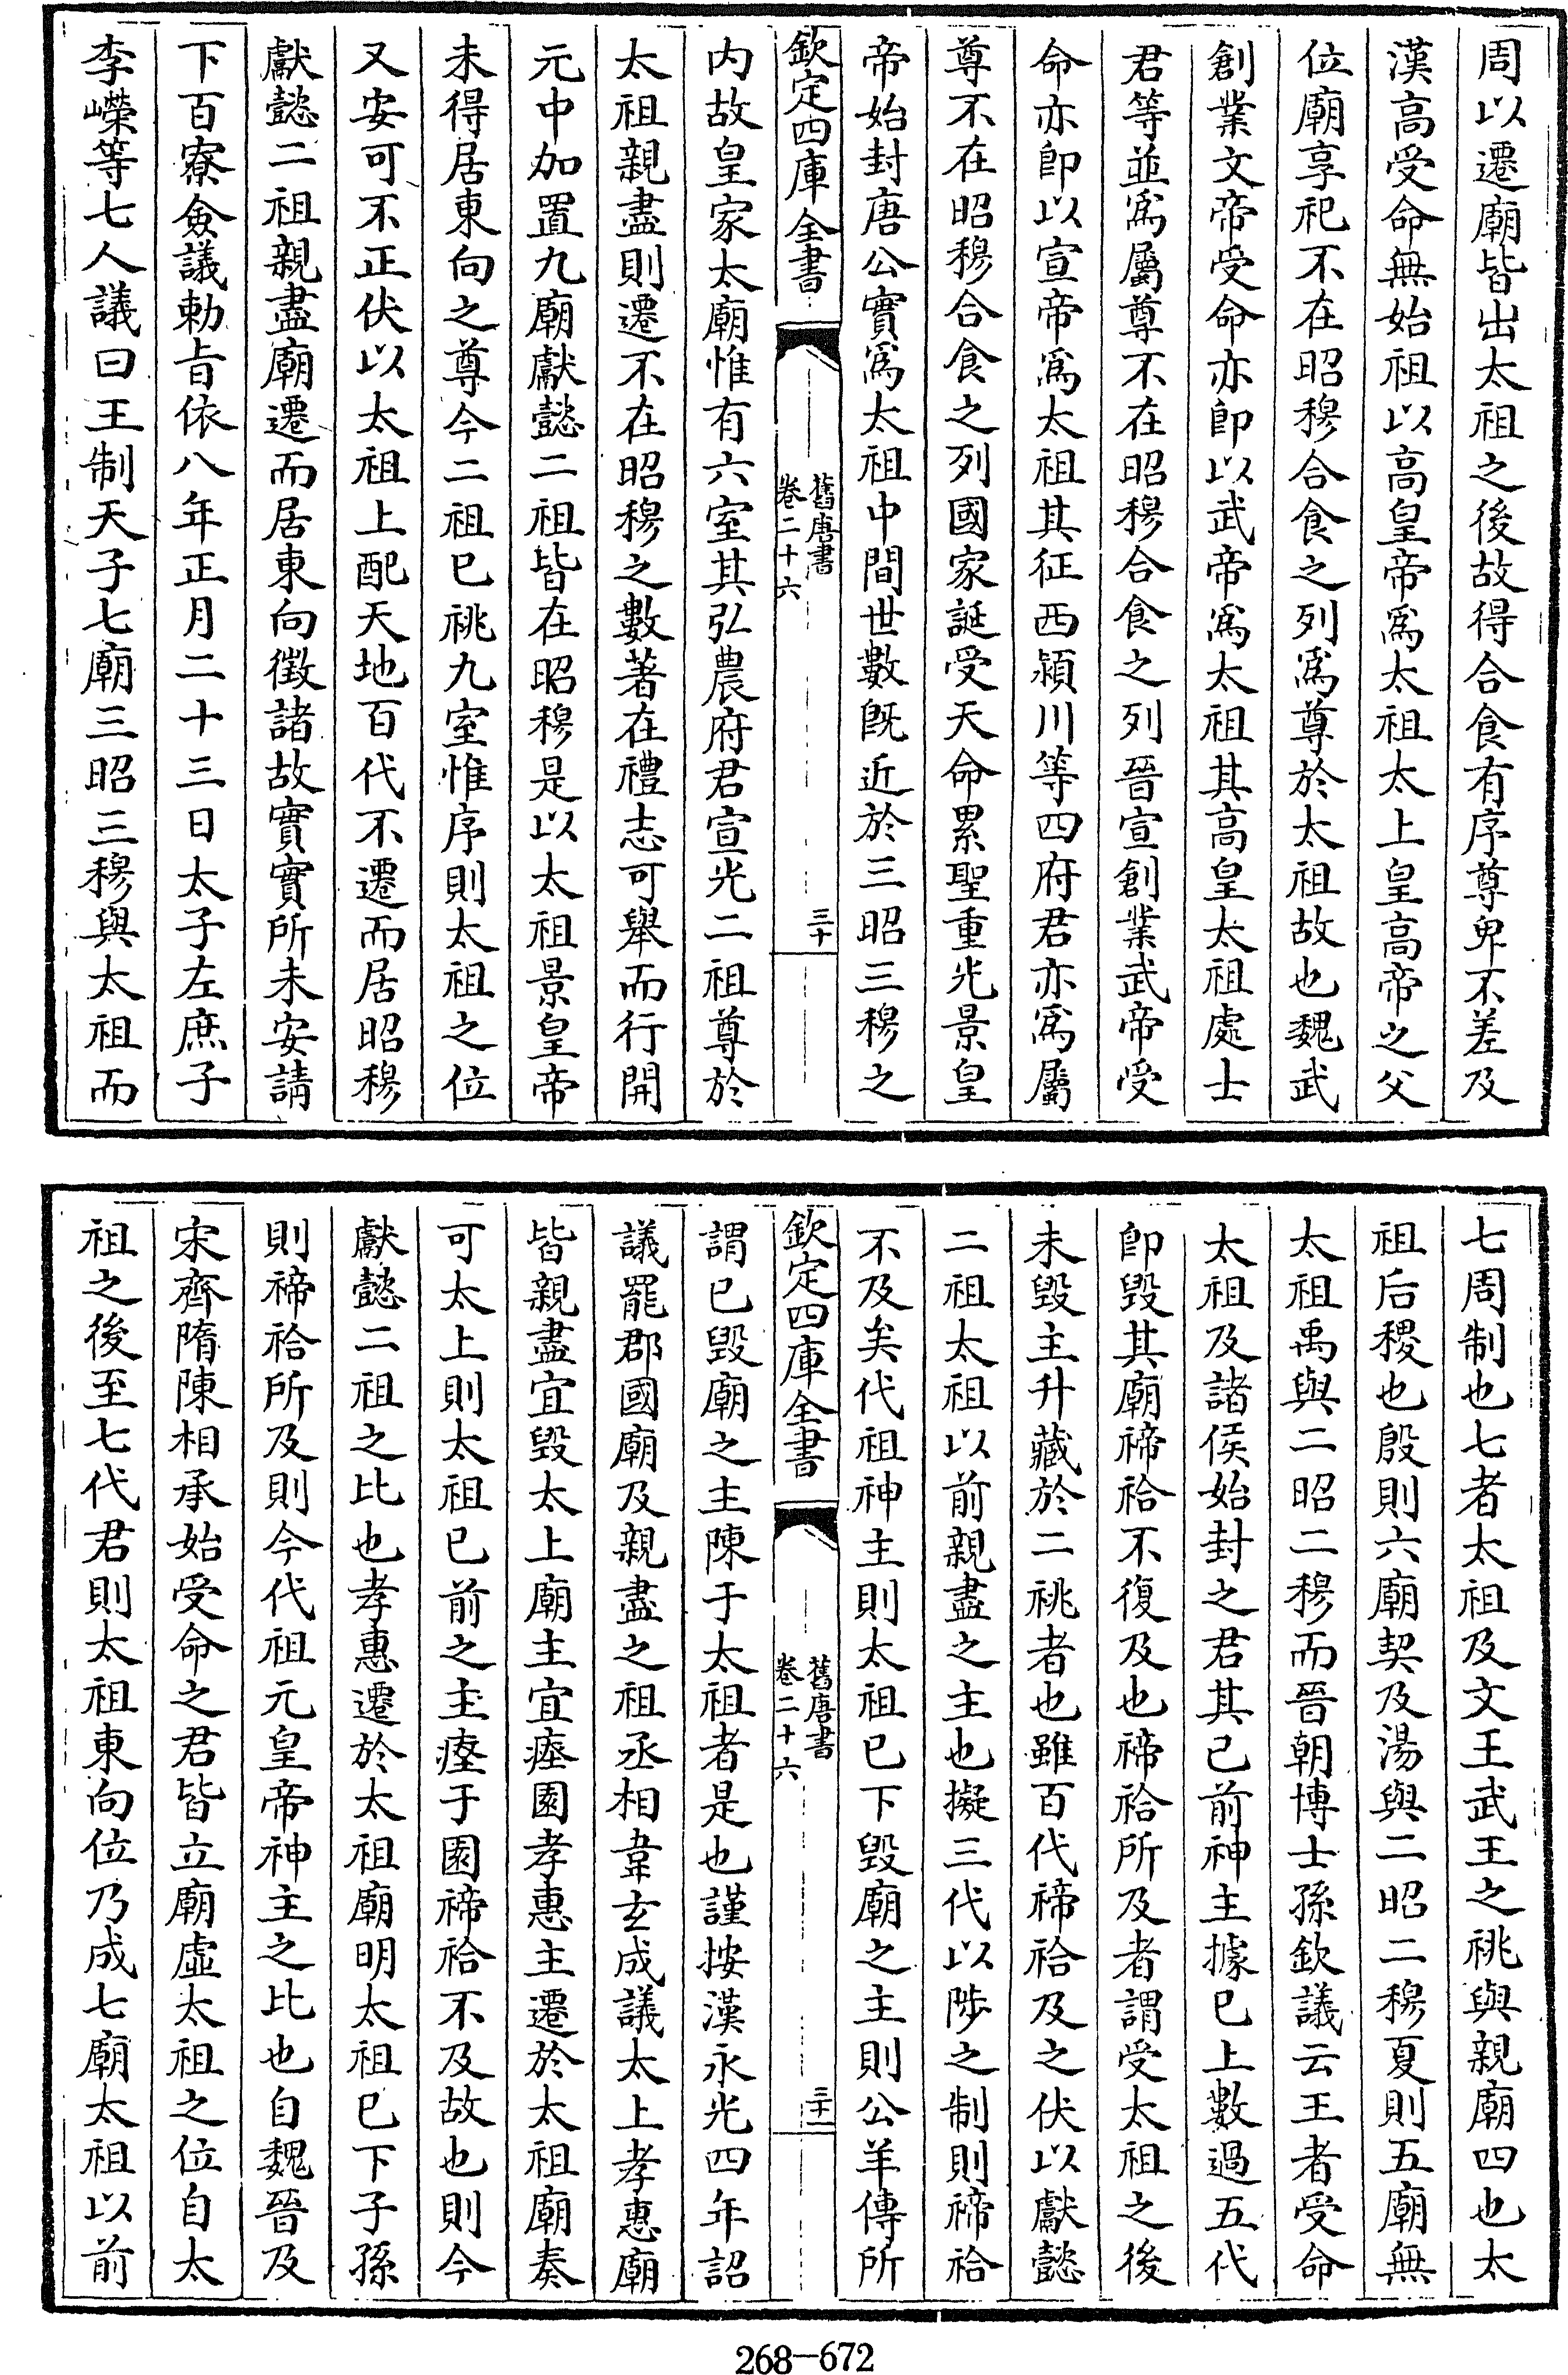 周以遷廟皆出太祖之後故得合食有序尊卑不差及
漢高受命無始祖以高皇帝爲太祖太上皇高帝之父
位廟享祀不在昭穆合食之列爲尊於太祖故也魏武
創業文帝受命亦卽以武帝爲太祖其高皇太祖處士
君等並爲屬尊不在昭穆合食之列晉宣創業武帝受
命亦卽以宣帝爲太祖其征西潁川等四府君亦爲屬
尊不在昭穆合食之列國家誕受天命累聖重光景皇
帝始封唐公實爲太祖中間世數旣近於三昭三穆之
欽定四庫全書
舊唐書
卷二十六
三十
内故皇家太廟惟有六室其弘農府君宣光二祖尊於
太祖親盡則遷不在昭穆之數著在禮志可舉而行開
元中加置九廟獻懿二祖皆在昭穆是以太祖景皇帝
未得居東向之尊今二祖已祧九室惟序則太祖之位
又安可不正伏以太祖上配天地百代不遷而居昭穆
獻懿二祖親盡廟遷而居東向徵諸故實實所未安請
下百寮僉議勅旨依八年正月二十三日太子左庶子
李嶸等七人議曰王制天子七廟三昭三穆與太祖而
七周制也七者太祖及文王武王之祧與親廟四也太
祖后稷也殷則六廟契及湯與二昭二穆夏則五廟無
太祖禹與二昭二穆而晉朝博士孫欽議云王者受命
太祖及諸侯始封之君其已前神主據已上數過五代
卽毀其廟禘祫不復及也禘祫所及者謂受太祖之後
未毀主升藏於二祧者也雖百代禘祫及之伏以獻懿
二祖太祖以前親盡之主也擬三代以陟之制則禘祫
不及矣代祖神主則太祖已下毀廟之主則公羊傳所
欽定四庫全書
舊唐書
卷二十六
三十一
謂已毀廟之主陳于太祖者是也謹按漢永光四年詔
議罷郡國廟及親盡之祖丞相韋玄成議太上孝惠廟
皆親盡宜毀太上廟主宜瘞園孝惠主遷於太祖廟奏
可太上則太祖已前之主瘞于園禘祫不及故也則今
獻懿二祖之比也孝惠遷於太祖廟明太祖已下子孫
則禘祫所及則今代祖元皇帝神主之比也自魏晉及
宋齊隋陳相承始受命之君皆立廟虛太祖之位自太
祖之後至七代君則太祖東向位乃成七廟太祖以前
268—672